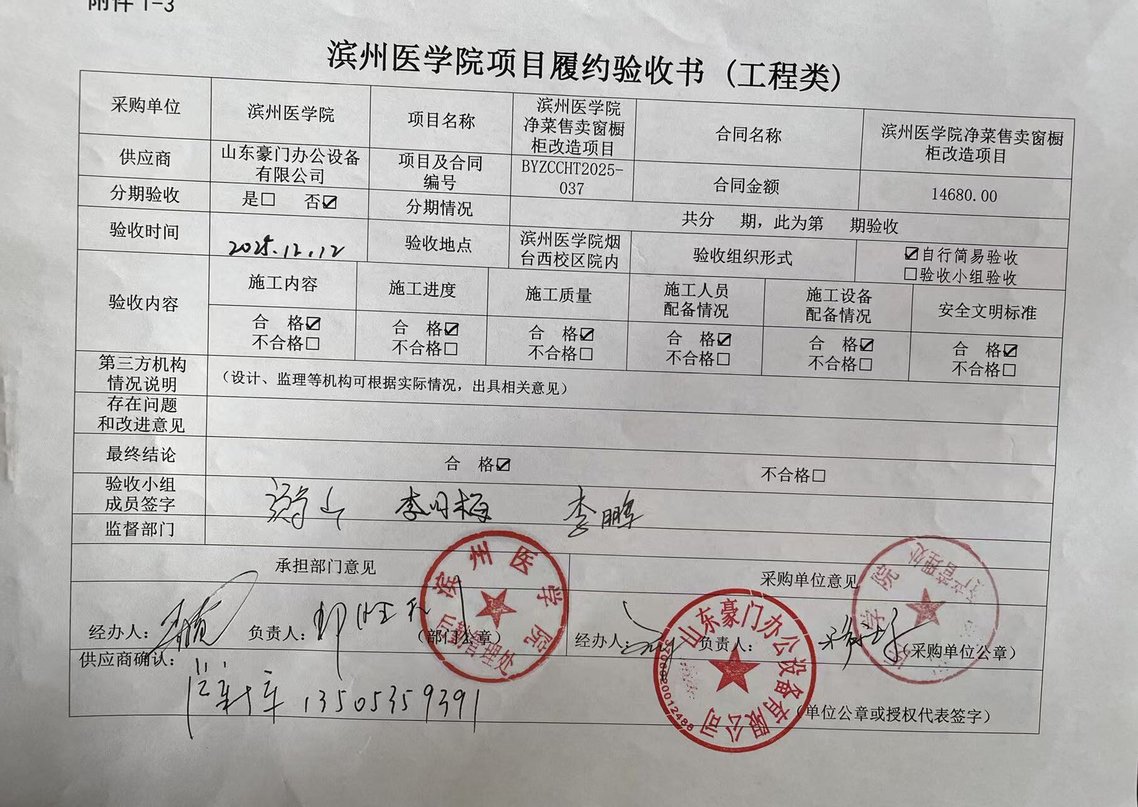 附件 1-3
滨州医学院项目履约验收书（工程类）
采购单位
滨州医学院
项目名称
滨州医学院
净菜售卖窗橱
柜改造项目
合同名称
滨州医学院净菜售卖窗橱
柜改造项目
供应商
山东豪门办公设备
有限公司
项目及合同
编号
BYZCCHT2025-
037
合同金额
14680.00
分期验收
是☐ 否☑
分期情况
共分 期，此为第 期验收
验收时间
2025.12.12
验收地点
滨州医学院烟
台西校区院内
验收组织形式
☑自行简易验收
☐验收小组验收
验收内容
施工内容
施工进度
施工质量
施工人员
配备情况
施工设备
配备情况
安全文明标准
合 格☑
不合格☐
合 格☑
不合格☐
合 格☑
不合格☐
合 格☑
不合格☐
合 格☑
不合格☐
合 格☑
不合格☐
第三方机构
情况说明
（设计、监理等机构可根据实际情况，出具相关意见）
存在问题
和改进意见
最终结论
合 格☑
不合格☐
验收小组
成员签字
李月梅
李鹏
监督部门
承担部门意见
采购单位意见
经办人：
负责人：
（部门公章）
经办人：
负责人：
（采购单位公章）
滨州医学院
山东豪门办公设备有限公司
供应商确认：
13505359391
（单位公章或授权代表签字）